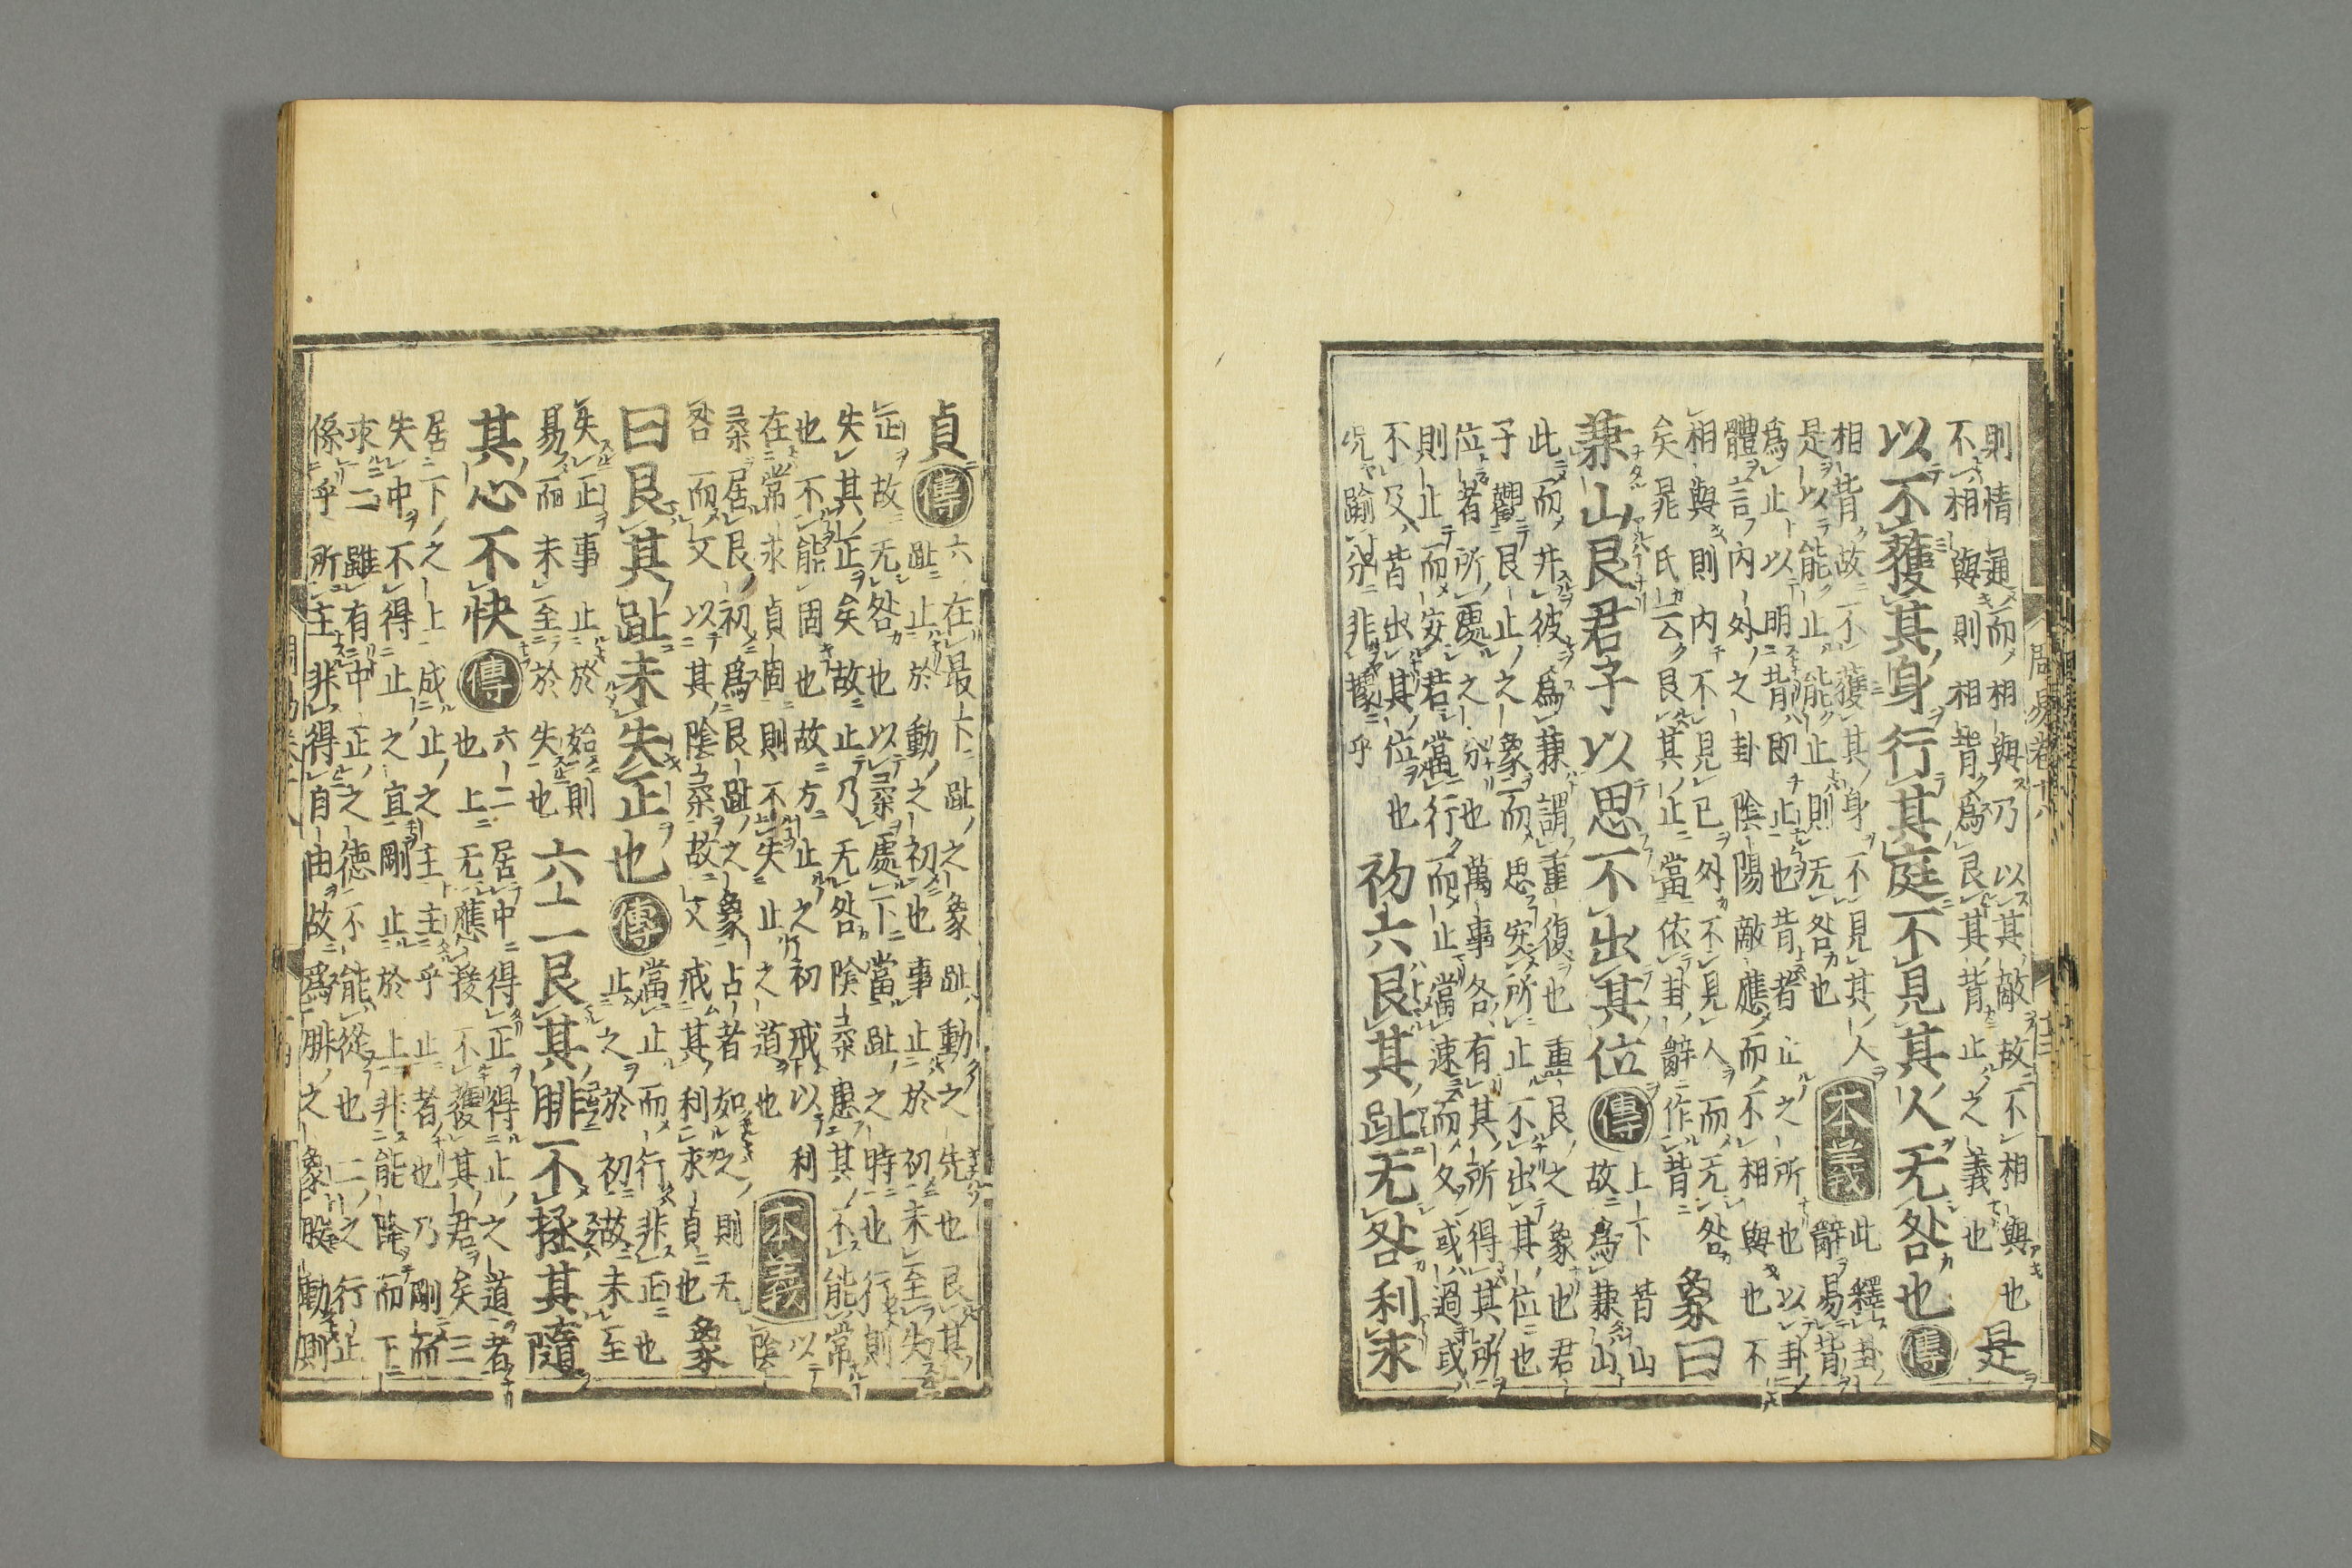 周易卷十八
十三
則情通而相與乃以其敵故不相與也
不相與則相背爲艮其背止之義也
是
以不獲其身行其庭不見其人无咎也傳
相背故不獲其身不見其人
是以能止能止則无咎也
本義
此釋卦
辭易背
爲止以明背即止也背者止之所也以卦
體言內外之卦陰陽敵應而不相與也不
相與則內不見已外不見人而无咎
矣晁氏云艮其止當依卦辭作背
象曰
兼山艮君子以思不出其位傳
上下皆山
故爲兼山
此而并彼爲兼謂重復也重艮之象也君
子觀艮止之象而思安所止不出其位也
位者所處之分也萬事各有其所得其所
則止而安若當行而止當速而久或過或
不及皆出其位也
况踰分非據乎
初六艮其趾无咎利永
貞傳
六在最下趾之象趾動之先也艮其
趾止於動之初也事止於初未至失
正故无咎也以柔處下當趾之時也行則
失其正矣故止乃无咎陰柔患其不能常
也不能固也故方止之初戒以利
在常永貞固則不失止之道也
本義
以
陰
柔居艮初爲艮趾之象占者如之則无
咎而又以其陰柔故又戒其利永貞也
象
曰艮其趾未失正也傳
當止而行非正也
止之於初故未至
失正事止於始則
易而未至於失也
六二艮其腓不拯其隨
其心不快傳
六二居中得正得止之道者
也上无應援不獲其君矣三
居下之上成止之主主乎止者也乃剛而
失中不得止之宜剛止於上非能降而下
求二雖有中正之德不能從也二之行止
係乎所主非得自由故爲腓之象股動則